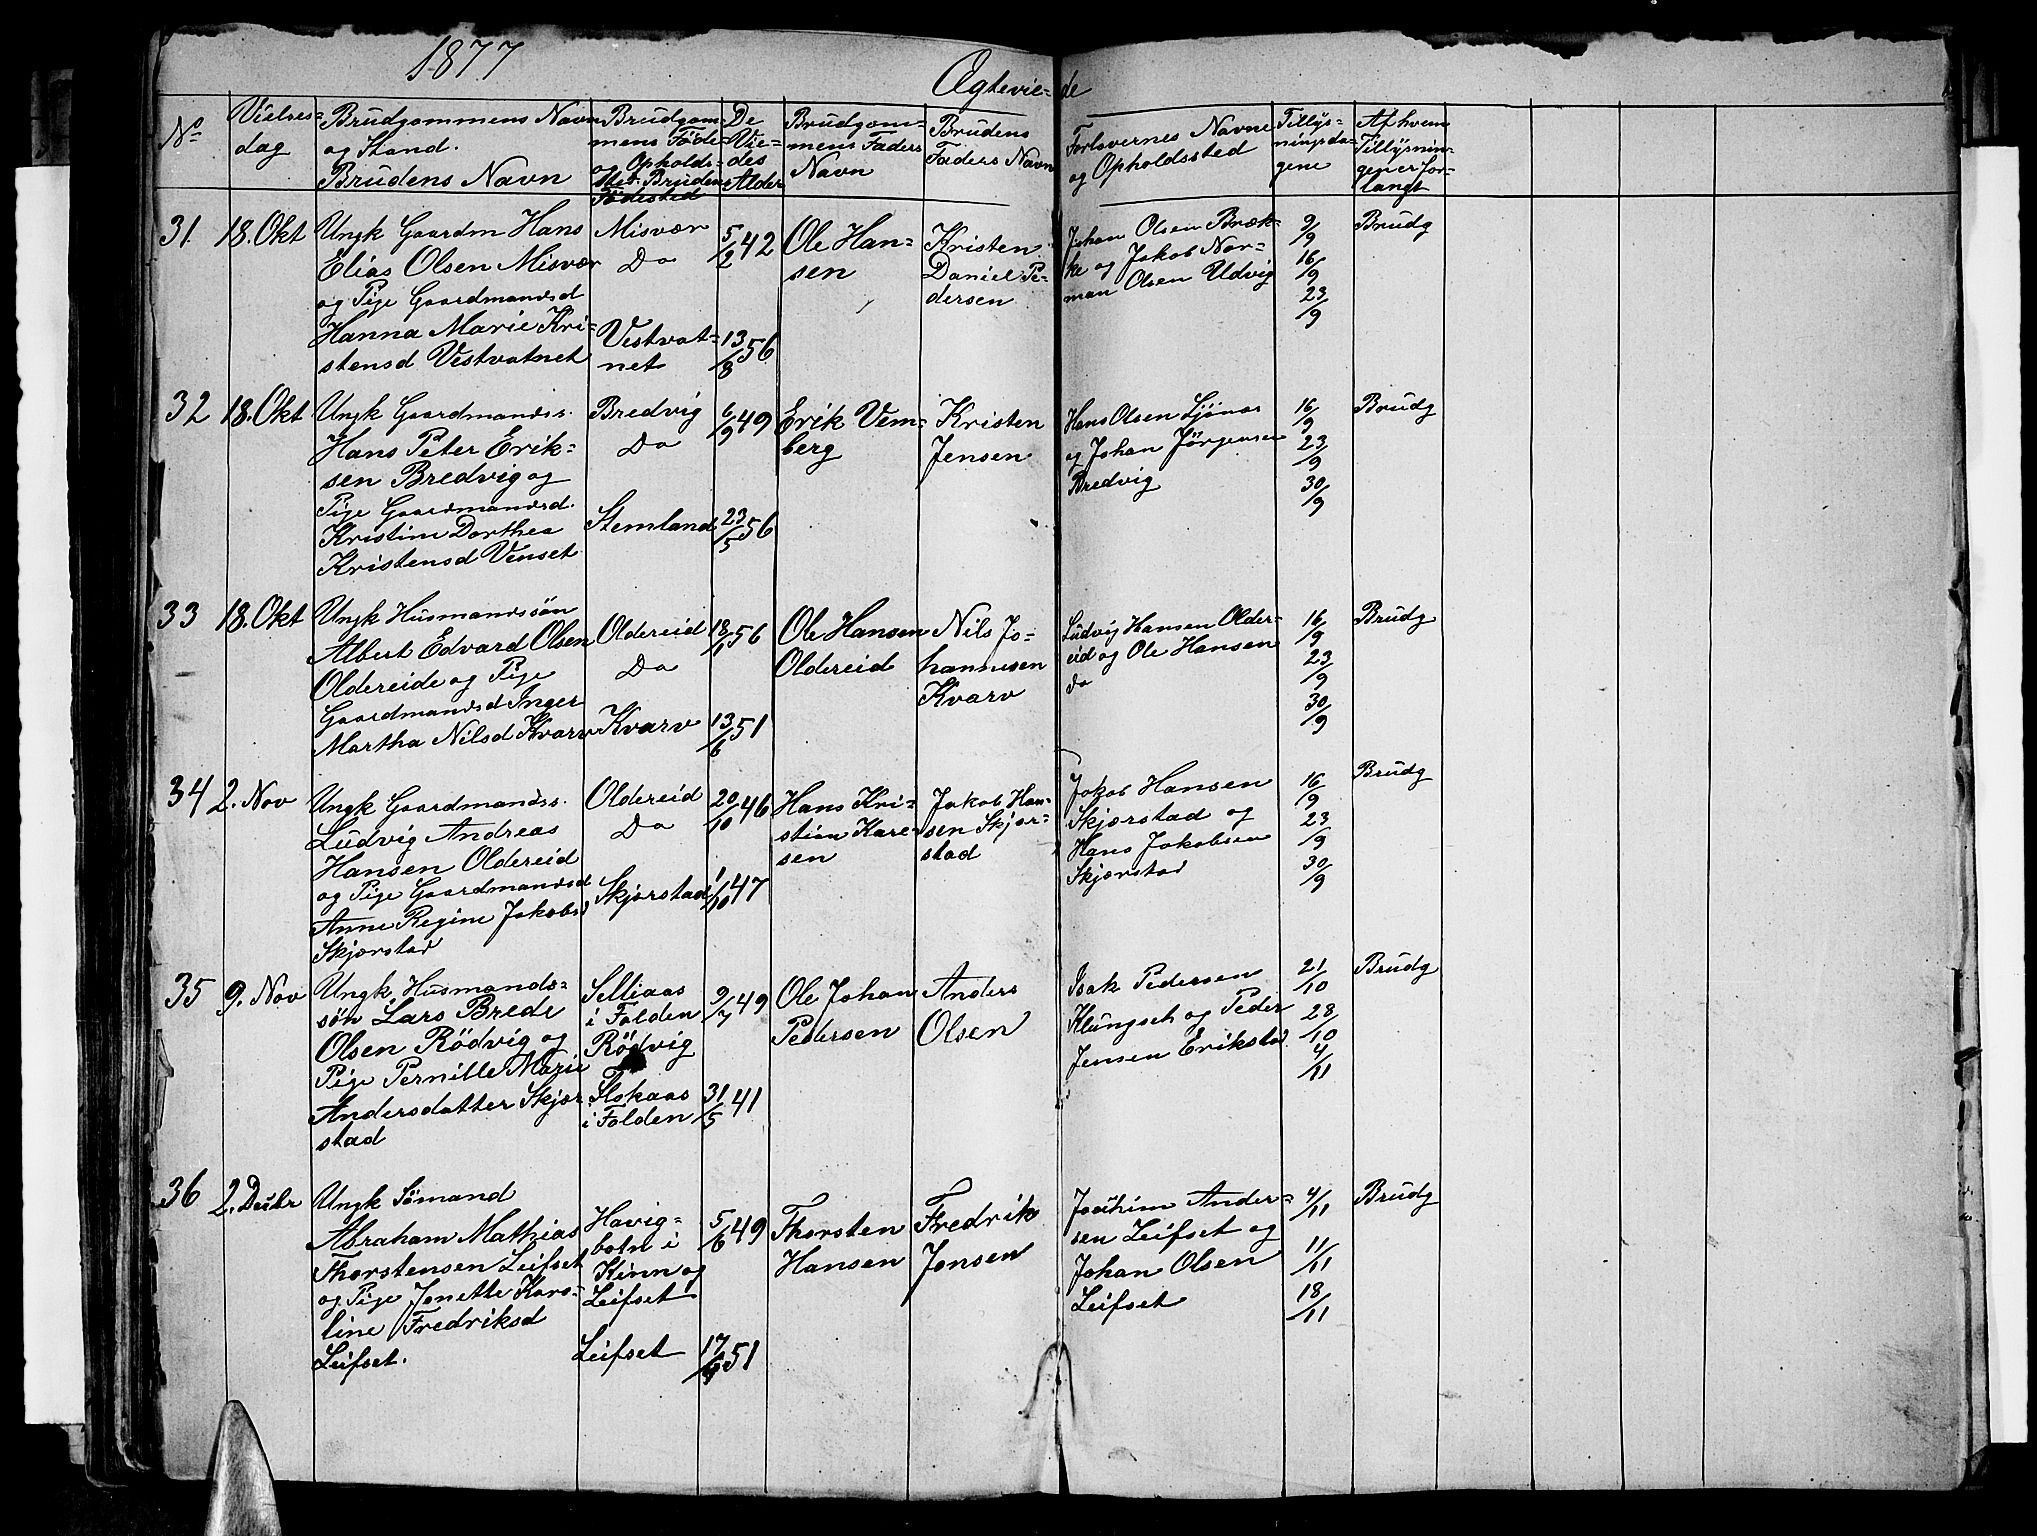 1877
Ægtevie=de
No
Vielses=
dag
Brudgommens Navn
og Stand.
Brudens Navn
Brudgom=
mens Føde
og Opholds=
sted. Brudens
Fødested
De
Vie=
des
Alder
Brudgom=
mens Faders
Navn
Brudens
Faders Navn
Forlovernes Navne
og Opholdssted
Tillys=
ningsda=
gene
Af hvem
Tillysnin=
gen er for=
langt
31.
18. Okt
Ungk Gaardm Hans
Elias Olsen Misvær
og Pige Gaardmandsd
Hanna Marie Kri=
stensd Vestvatnet
Misvær
Do
Vestvat=
net
5/2 42
13/8 56
Ole Han=
sen
Kristen
Daniel Pe=
dersen
Johan Olsen Bræk=
ke og Jakob Nor=
man Olsen Udvig
9/9
16/9
23/9
Brudg
32
18. Okt
Ungk Gaardmandss.
Hans Peter Erik=
sen Bredvig og
Pige Gaardmandsd.
Kristine Dorthea
Kristensd Venset
Bredvig
Do
Stemland
6/9 49
23/5 56
Erik Vem=
berg
Kristen
Jensen
Hans Olsen Ljønes
og Johan Jörgensen
Bredvig
16/9
23/9
30/9
Brudg
33
18. Okt
Ungk Husmandssön
Albert Edvard Olsen
Oldereide og Pige
Gaardmandsd Inger
Martha Nilsd Kvarv
Oldereid
Do
Kvarv
18/1 56
13/6 51
Ole Hansen
Oldereid
Nils Jo=
hannesen
Kvarv
Ludvig Hansen Older=
eid og Ole Hansen
do
16/9
23/9
30/9
Brudg
34
2. Nov
Ungk Gaardmandss.
Ludvig Andreas
Hansen Oldereid
og Pige Gaardmandsd
Anne Regine Jakobsd
Skjærstad
Oldereid
Do
Skjærstad
20/10 46
1/10 47
Hans Kri=
stian Kare=
sen
Jakob Han=
sen Skjær=
stad
Jakob Hansen
Skjærstad og
Hans Jakobsen
Skjærstad
16/9
23/9
30/9
Brudg
35
9. Nov
Ungk Husmands=
sön Lars Brede
Olsen Rödvig og
Pige Pernille Marie
Andersdatter Skjær=
stad
Selliaas
i Folden
Rödvig
i Folden
9/7 49
31/5 41
Ole Johan
Pedersen
Anders
Olsen
Isak Pedersen
Klungset og Peder
Jensen Erikstad
21/10
28/10
4/11
Brudg
36
2. Decbr
Ungk Sömand
Abraham Mathias
Thorstensen Leifset
og Pige Jonette Karo=
line Fredriksd
Leifset.
Havig=
botn i
Kinn og
Leifset
Leifset
5/6 49
17/9 51
Thorsten
Hansen
Fredrik
Jonsen
Joachim Ander=
sen Leifset og
Johan Olsen
Leifset
4/11
11/11
18/11
Brudg